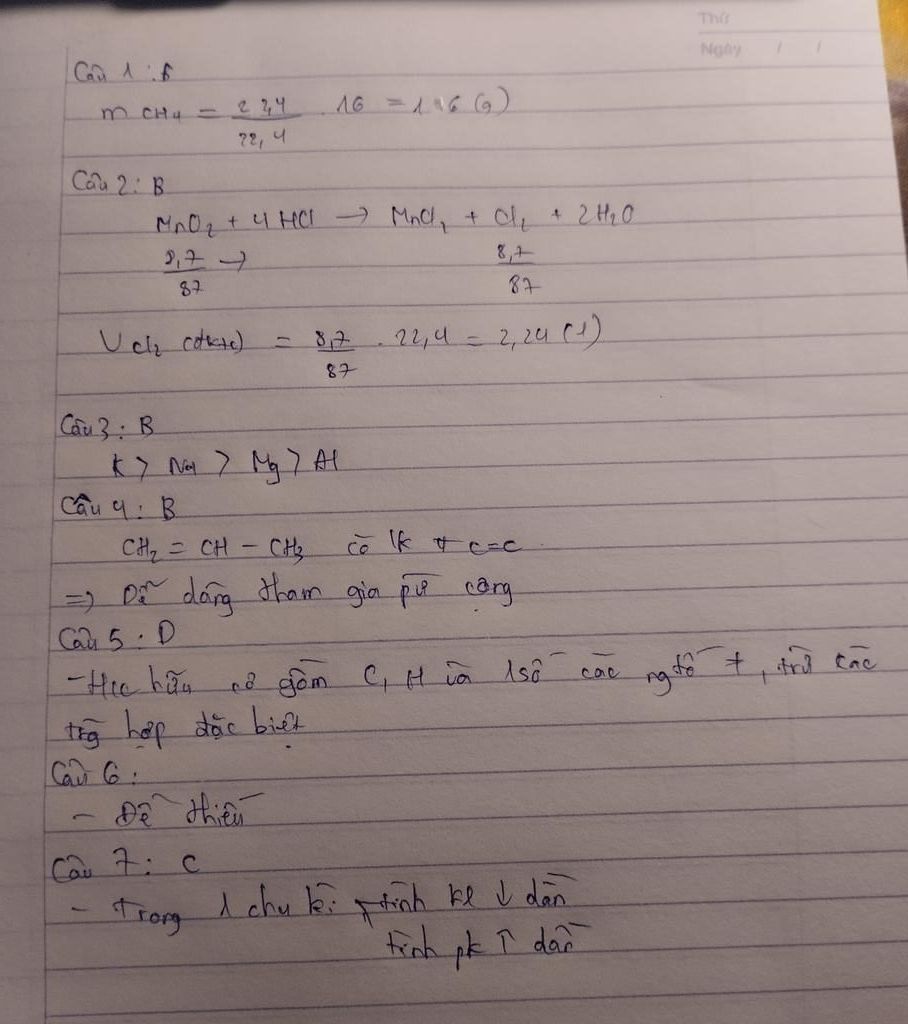 Thứ
Ngày / /
Câu 1 : B
m CH4 = 22,4/22,4 . 16 = 1,6 (g)
Câu 2 : B
MnO2 + 4 HCl → MnCl2 + Cl2 + 2H2O
8,7/87 → 8,7/87
V Cl2 (đktc) = 8,7/87 . 22,4 = 2,24 (l)
Câu 3 : B
K > Na > Mg > Al
Câu 4 : B
CH2 = CH - CH3 có lk π C=C
=> Dễ dàng tham gia pư cộng
Câu 5 : D
- Hcc hữu cơ gồm C, H và 1 số các ng tố ≠, trừ các
trg hợp đặc biệt
Câu 6 :
- Đề thiếu
Câu 7 : C
- Trong 1 chu kì, tính kl ↓ dần
tính pk ↑ dần